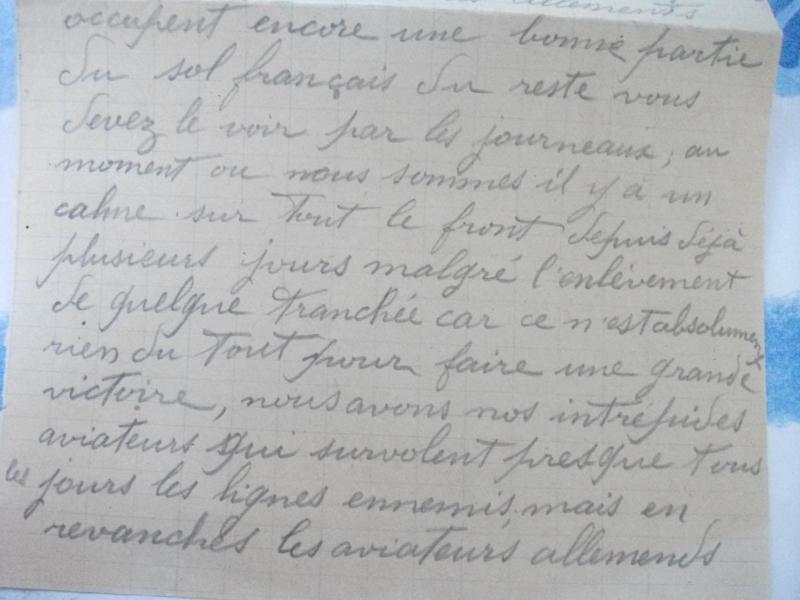 allements
occupent encore une bonne partie
du sol français du reste vous
devez le voir par les journeaux, au
moment ou nous sommes il y a un
calme sur tout le front depuis déjà
plusieurs jours malgré l'enlèvement
de quelque tranchée car ce n'est absolument
rien du tout pour faire une grande
victoire, nous avons nos intrépides
aviateurs qui survolent presque tous
les jours les lignes ennemis, mais en
revanches les aviateurs allemends